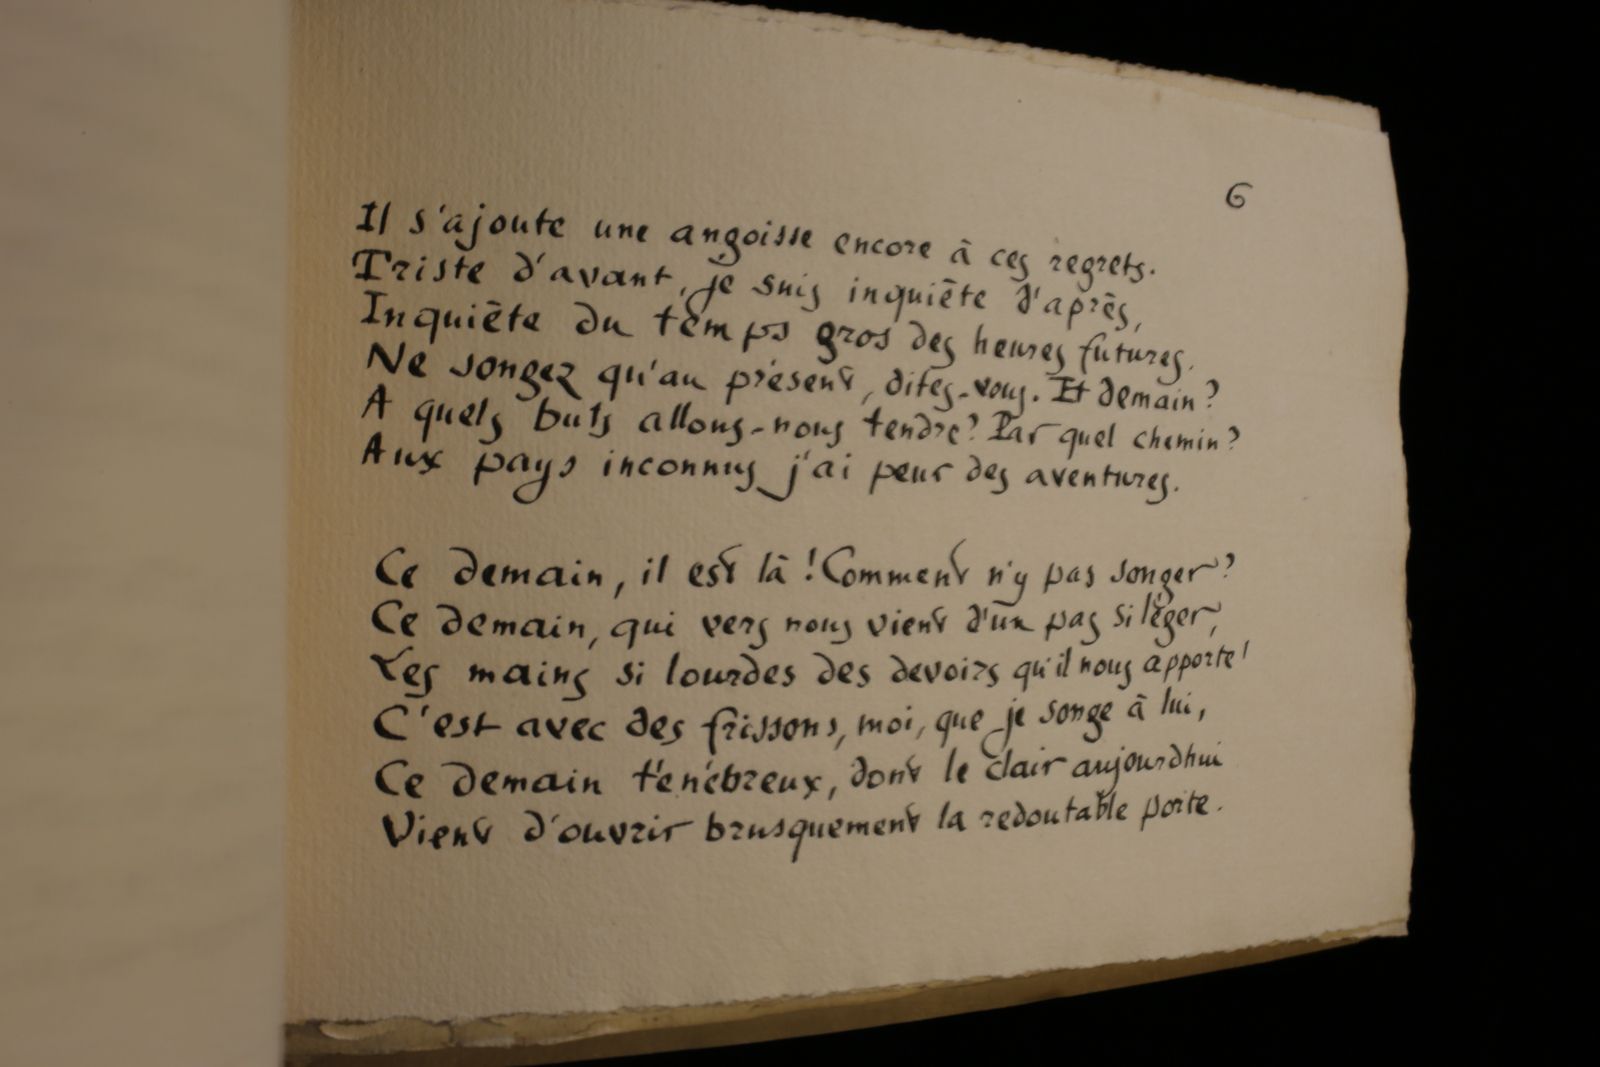 6
Il s'ajoute une angoisse encore à ces regrets.
Triste d'avant, je suis inquiète d'après,
Inquiète du temps gros des heures futures.
Ne songez qu'au présent, dites-vous. Et demain?
A quels buts allons-nous tendre? Par quel chemin?
Aux pays inconnus j'ai peur des aventures.
Ce demain, il est là! Comment n'y pas songer?
Ce demain, qui vers nous vient d'un pas si léger,
Les mains si lourdes des devoirs qu'il nous apporte!
C'est avec des frissons, moi, que je songe à lui,
Ce demain ténébreux, dont le clair aujourdhui
Vient d'ouvrir brusquement la redoutable porte.